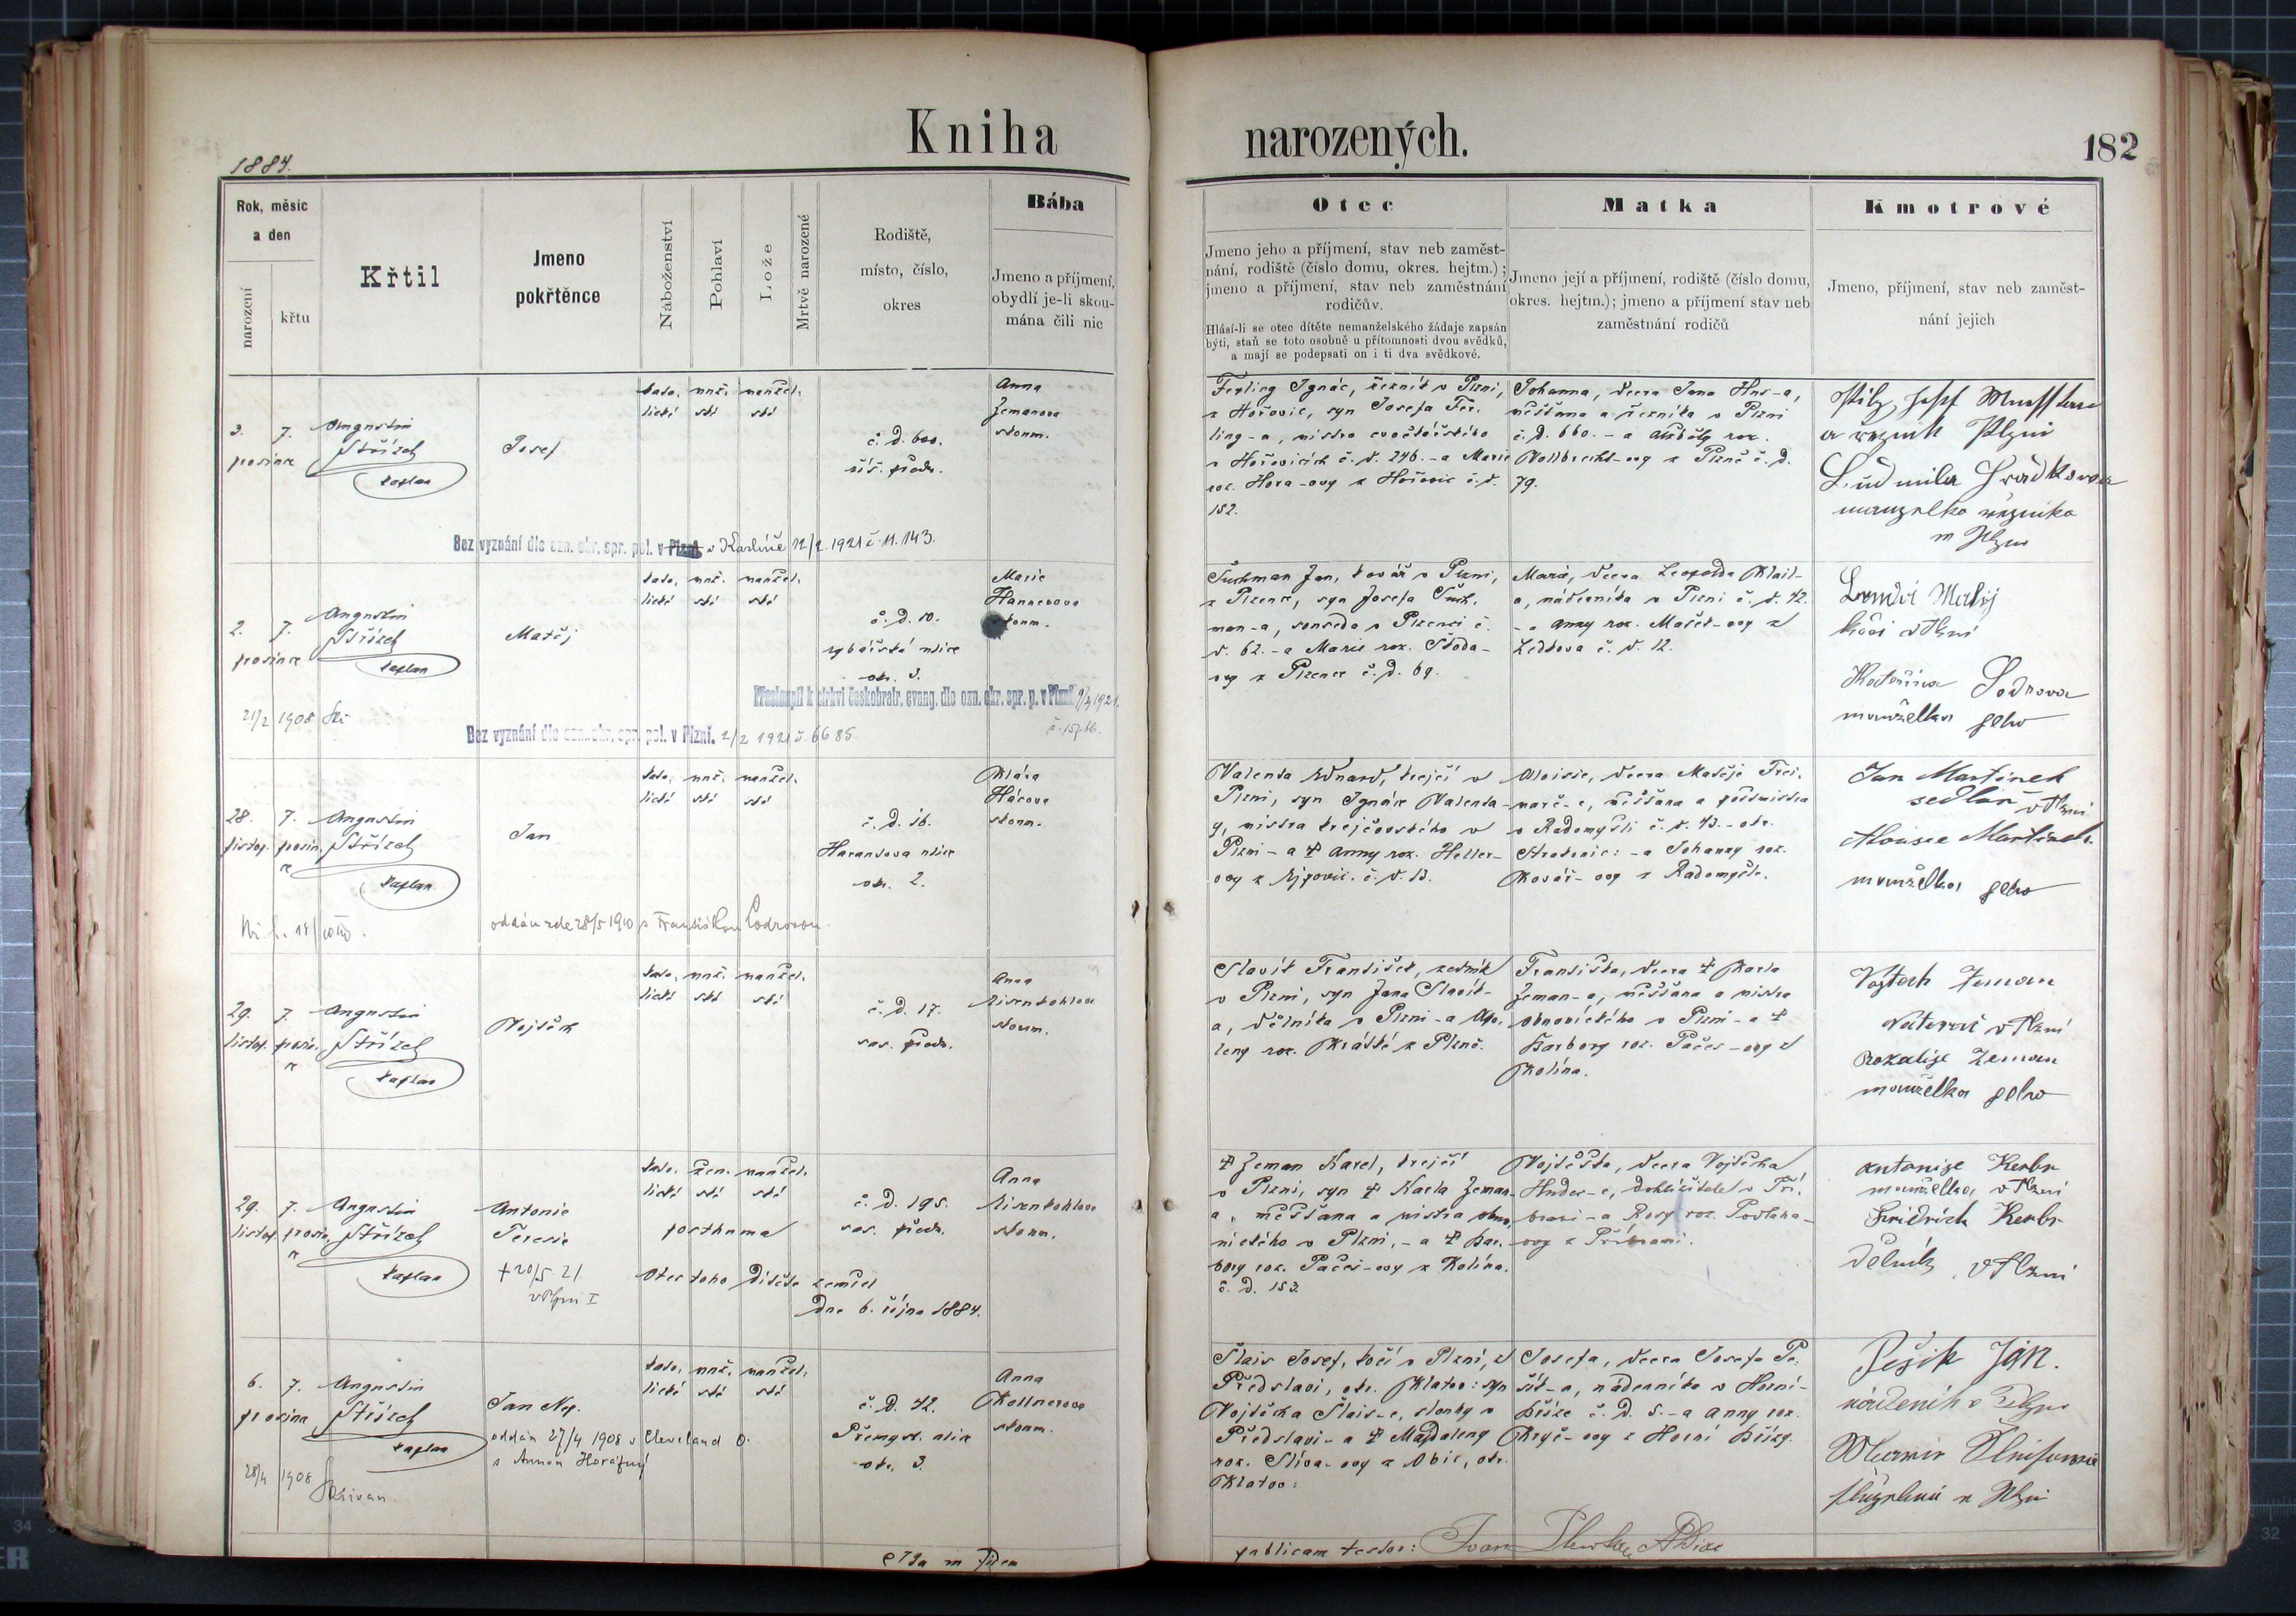 Kniha
narozených.
182
1884.
Rok, měsíc
a den
narození
křtu
Křtil
Jmeno
pokřtěnce
Náboženství
Pohlaví
Lože
Mrtvě narozené
Rodiště,
místo, číslo,
okres
Bába
Jmeno a příjmení,
obydlí je-li skou-
mána čili nic
Otec
Jmeno jeho a příjmení, stav neb zaměst-
nání, rodiště (číslo domu, okres. hejtm.);
jmeno a příjmení, stav neb zaměstnání
rodičův.
Hlásí-li se otec dítěte nemanželského žádaje zapsán
býti, staň se toto osobně u přítomnosti dvou svědků,
a mají se podepsati on i ti dva svědkové.
Matka
Jmeno její a příjmení, rodiště (číslo domu,
okres. hejtm.); jmeno a příjmení stav neb
zaměstnání rodičů
Kmotrové
Jmeno, příjmení, stav neb zaměst-
nání jejich
3. 7.
prosince
Augustin
Střízek
kaplan
Josef
kato- muž- manžel-
lické ské ské
č. d. 600.
říš. předm.
Anna
Zemanova
skoum.
Ferling Ignác, řezník v Plzni,
z Hořovic, syn Josefa Fer-
ling-a, mistra cvočkařského
v Hořovicích č. d. 246. - a Marie
roz. Hora-ovy z Hořovic č. d.
152.
Johanna, dcera Jana Hus-a,
měšťana a řezníka v Plzni
č. d. 660. - a roz.
Vollbrecht-ovy z Plzně č. d.
79.
Josef
a řezník Plzni
Ludmila Hrádkova
manželka řezníka
v Plzni
Bez vyznání dle ozn. okr. spr. pol. v Plzni v Karlíně 12/2. 1921 č. 11.143.
2. 7.
prosince
Augustin
Střízek
kaplan
Matěj
kato- muž- manžel-
lické ské ské
č. d. 10.
rybářská ulice
okr. 3.
Marie
Hannerova
skoum.
Tuchman Jan, kovář v Plzni,
z Plzence, syn Josefa Tuch-
man-a, souseda v Plzenci č.
d. 62. - a Marie roz. Škoda-
ovy z Plzence č. d. 69.
Marie, dcera Leopolda Klail-
a, nádenníka v Plzni č. d. 42.
- a Anny roz. Mašek-ovy z
Ledkova č. d. 12.
Matěj
kočí v Plzni
Kateřina
manželka jeho
Přestoupil k církvi českobratr. evang. dle ozn. okr. spr. p. v Plzni 9/3 1921.
č. 15766.
21/2 1908
Bez vyznání dle ozn. okr. spr. pol. v Plzni. 2/2 1921 č. 6685.
28. 7.
listop. prosin-
ce
Augustin
Střízek
kaplan
Jan
kato- muž- manžel-
lické ské ské
č. d. 16.
Harantova ulice
okr. 2.
Klára
Hácova
skoum.
Valenta Eduard, krejčí v
Plzni, syn Ignáce Valenta-
y, mistra krejčovského v
Plzni - a † Anny roz. Heller-
ovy z Ejpovic. č. d. 13.
Aloisie, dcera Matěje Trei-
nar-e, měšťana a poštmistra
v Radomyšli č. d. 43. - okr.
Strakonic: - a Johanny roz.
Kovář-ovy z Radomyšle.
Jan Martínek
sedlář v Plzni
Aloisie Martínek
manželka jeho
oddán zde 28/5 1910 s Františkou
29. 7.
listop. prosin-
ce
Augustin
Střízek
kaplan
Vojtěch
kato- muž- manžel-
lické ské ské
č. d. 17.
sas. předm.
Anna
Eisenkohlova
skoum.
Slavík František, zedník
v Plzni, syn Jana Slavík-
a, dělníka v Plzni - a Apo-
leny roz. Krátké z Plzně.
Františka, dcera † Karla
Zeman-a, měšťana a mistra
obuvnického v Plzni - a †
Barbory roz. Pačes-ovy z
Kolína.
Vojtěch Zeman
v Plzni
Rozalije Zeman
manželka jeho
29. 7.
listop. prosin-
ce
Augustin
Střízek
kaplan
Antonie
Teresie
† 20/5 21
v Plzni I
kato- žen- manžel-
lické ské ské
posthuma
otec toho dítěte zemřel
dne 6. října 1884.
č. d. 195.
sas. předm.
Anna
Eisenkohlova
skoum.
† Zeman Karel, krejčí
v Plzni, syn † Karla Zeman-
a, měšťana a mistra obuv-
nického v Plzni, - a † Bar-
bory roz. Pačes-ovy z Kolína.
č. d. 153.
Vojtěška, dcera Vojtěcha
Huder-e, dohlížitele v Pří-
brami - a Rosy roz. Podlaha-
ovy z Příbrami.
Antonije Kerbr
manželka v Plzni
Fridrich Kerbr
Dělník v Plzni
6. 7.
prosince
Augustin
Střízek
kaplan
Jan Nep.
oddán 27/4 1908 v Cleveland O.
s Annou
28/4 1908
Křivan
kato- muž- manžel-
lické ské ské
č. d. 42.
Přemysl. ulice
okr. 3.
Anna
Kellnerova
skoum.
Šlais Josef, kočí v Plzni, z
Předslavi, okr. Klatov: syn
Vojtěcha Šlais-e, slouhy v
Předslavi - a † Majdaleny
roz. Slíva-ovy z Obic, okr.
Klatov:
Josefa, dcera Josefa Pe-
šík-a, nádenníka v Horní-
Bříze č. d. 5. - a Anny roz.
Krýč-ovy z Horní Břízy.
Pešik Jan.
nádeník v Plzni
v Plzni
publicam testor: